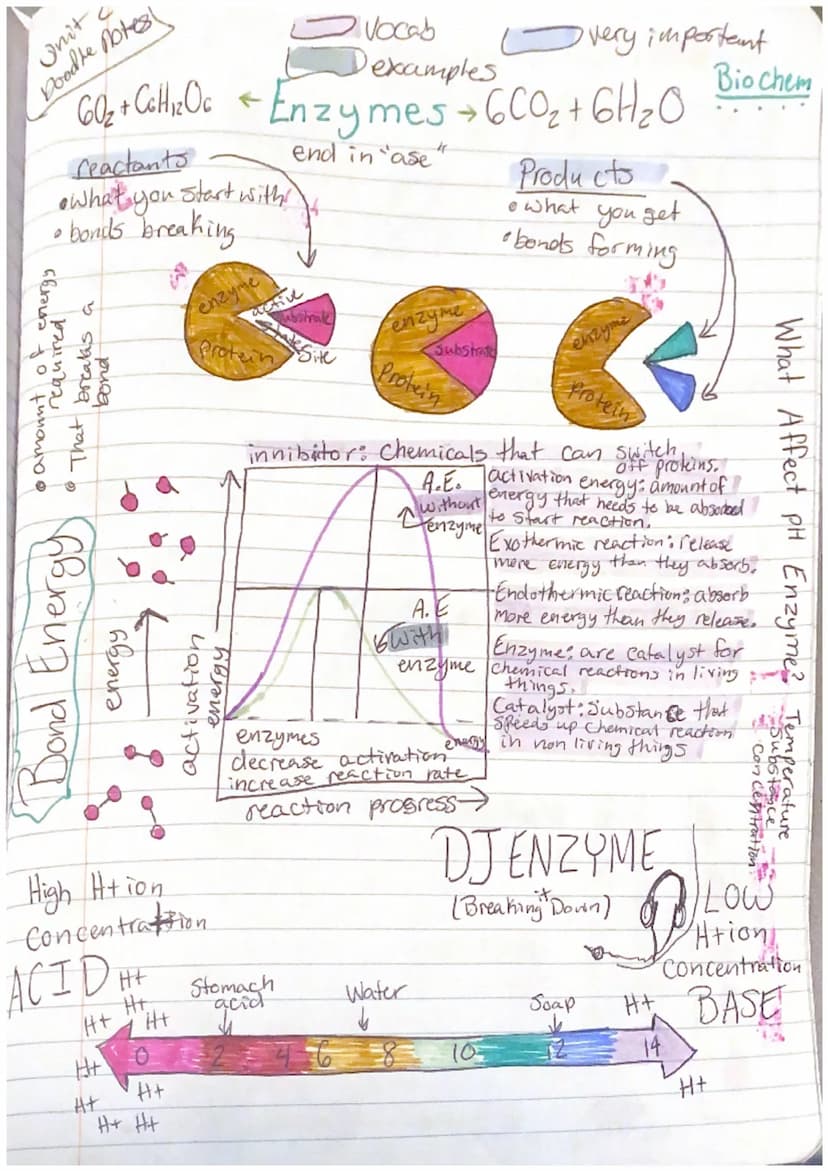 Unit 2
Doodle Notes!
vocab
examples
very important
Biochem
6O₂ + C6H12O6 ← Enzymes → 6CO₂ + 6H₂O
end in "ase"
reactants
• what you start with
• bonds breaking
Products
• what you get
• bonds forming
enzyme
Protein
active
site
substrate
enzyme
Protein
substrate
enzyme
Protein
• amount of energy
required
• That breaks a
bond
Bond Energy
energy
innibitor: Chemicals that can switch
off proteins.
activation energy: amount of
energy that needs to be absorbed
to start reaction.
Exothermic reaction: release
more energy than they absorb.
Endothermic reaction: absorb
more energy than they release.
Enzyme: are catalyst for
chemical reactions in living
things.
Catalyst: Substance that
speeds up chemical reaction
in non living things
A.E.
without
enzyme
A.E
With
enzyme
energy
activation
energy
enzymes
decrease activation
increase reaction rate
reaction progress →
What Affect pH Enzyme?
Temperature
Substance
Concentration
DJ ENZYME
(Breaking it Down)
High H+ ion
Concentration
LOW
H+ ion
Concentration
ACID
BASE
H+
H+
H+
H+
H+
H+
H+
H+ H+
Stomach
acid
Water
Soap
H+
0 2 4 6 8 10 12 14
H+